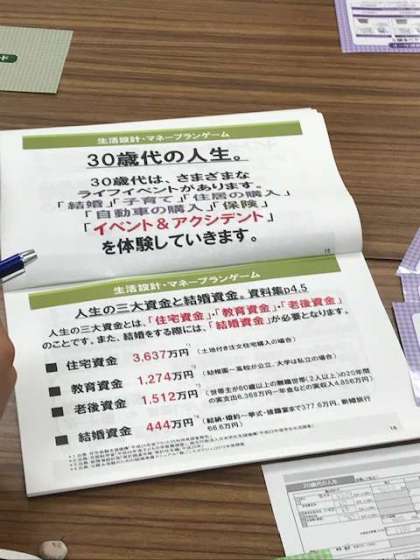 ード
生活設計・マネープランゲーム
30歳代の人生。
30歳代は、さまざまな
ライフイベントがあります。
「結婚」「子育て」「住居の購入」
「自動車の購入」「保険」
「イベント&アクシデント」
を体験していきます。
15
生活設計・マネープランゲーム
人生の三大資金と結婚資金。資料集p4.5
人生の三大資金とは、「住宅資金」・「教育資金」・「老後資金」
のことです。また、結婚をする際には、「結婚資金」が必要となります。
■ 住宅資金 3,637万円 (土地付き注文住宅購入の場合)
■ 教育資金 1,274万円 (幼稚園~高校が公立、大学は私立の場合)
■ 老後資金 1,512万円 (世帯主が60歳以上の無職世帯(2人以上)の25年間
の実支出6,368万円-年金などの実収入4,856万円)
■ 結婚資金 444万円 (結納・婚約~挙式・披露宴まで377.6万円、新婚旅行
66.6万円)
16
30歳代の人生